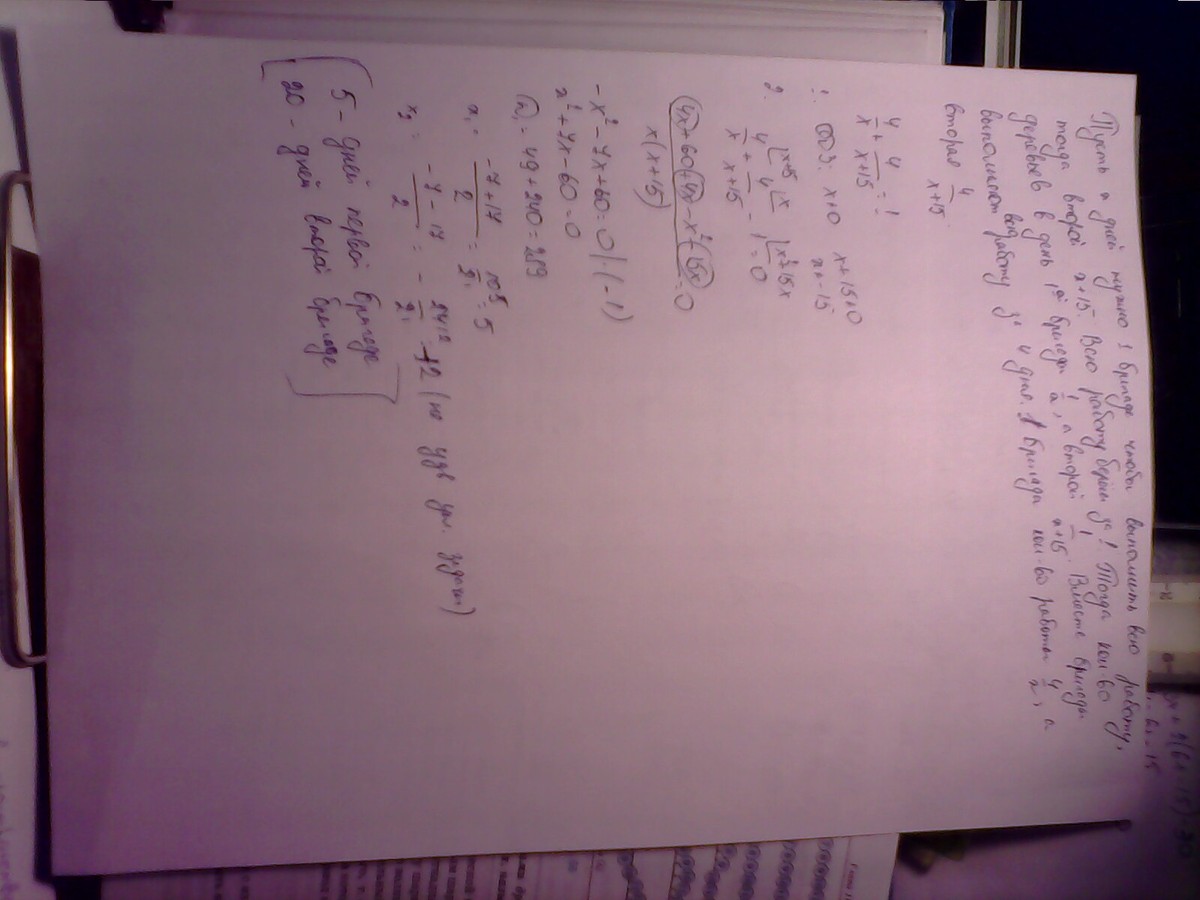 Пусть x дней нужно 1 бригаде чтобы выполнить всю работу,
тогда второй x+15. Всю работу берём за 1. Тогда кол-во
деревьев в день 1ой бригады 1/x, а второй 1/x+15. Вместе бригады
выполняют всю работу за 4 дня. 1 бригада кол-во работы 4/x, а
вторая 4/x+15.
4/x + 4/x+15 = 1
1. ОДЗ: x≠0 x+15≠0
x≠-15
2. 4/x + 4/x+15 - 1 = 0
4x+60+4x-x²-15x / x(x+15) = 0
-x²-7x+60=0 |·(-1)
x²+7x-60=0
D = 49+240=289
x₁ = -7+17 / 2 = 10/2 = 5
x₂ = -7-17 / 2 = -24/2 = -12 (не удв. усл. задачи)
5 - дней первой бригаде
20 - дней второй бригаде